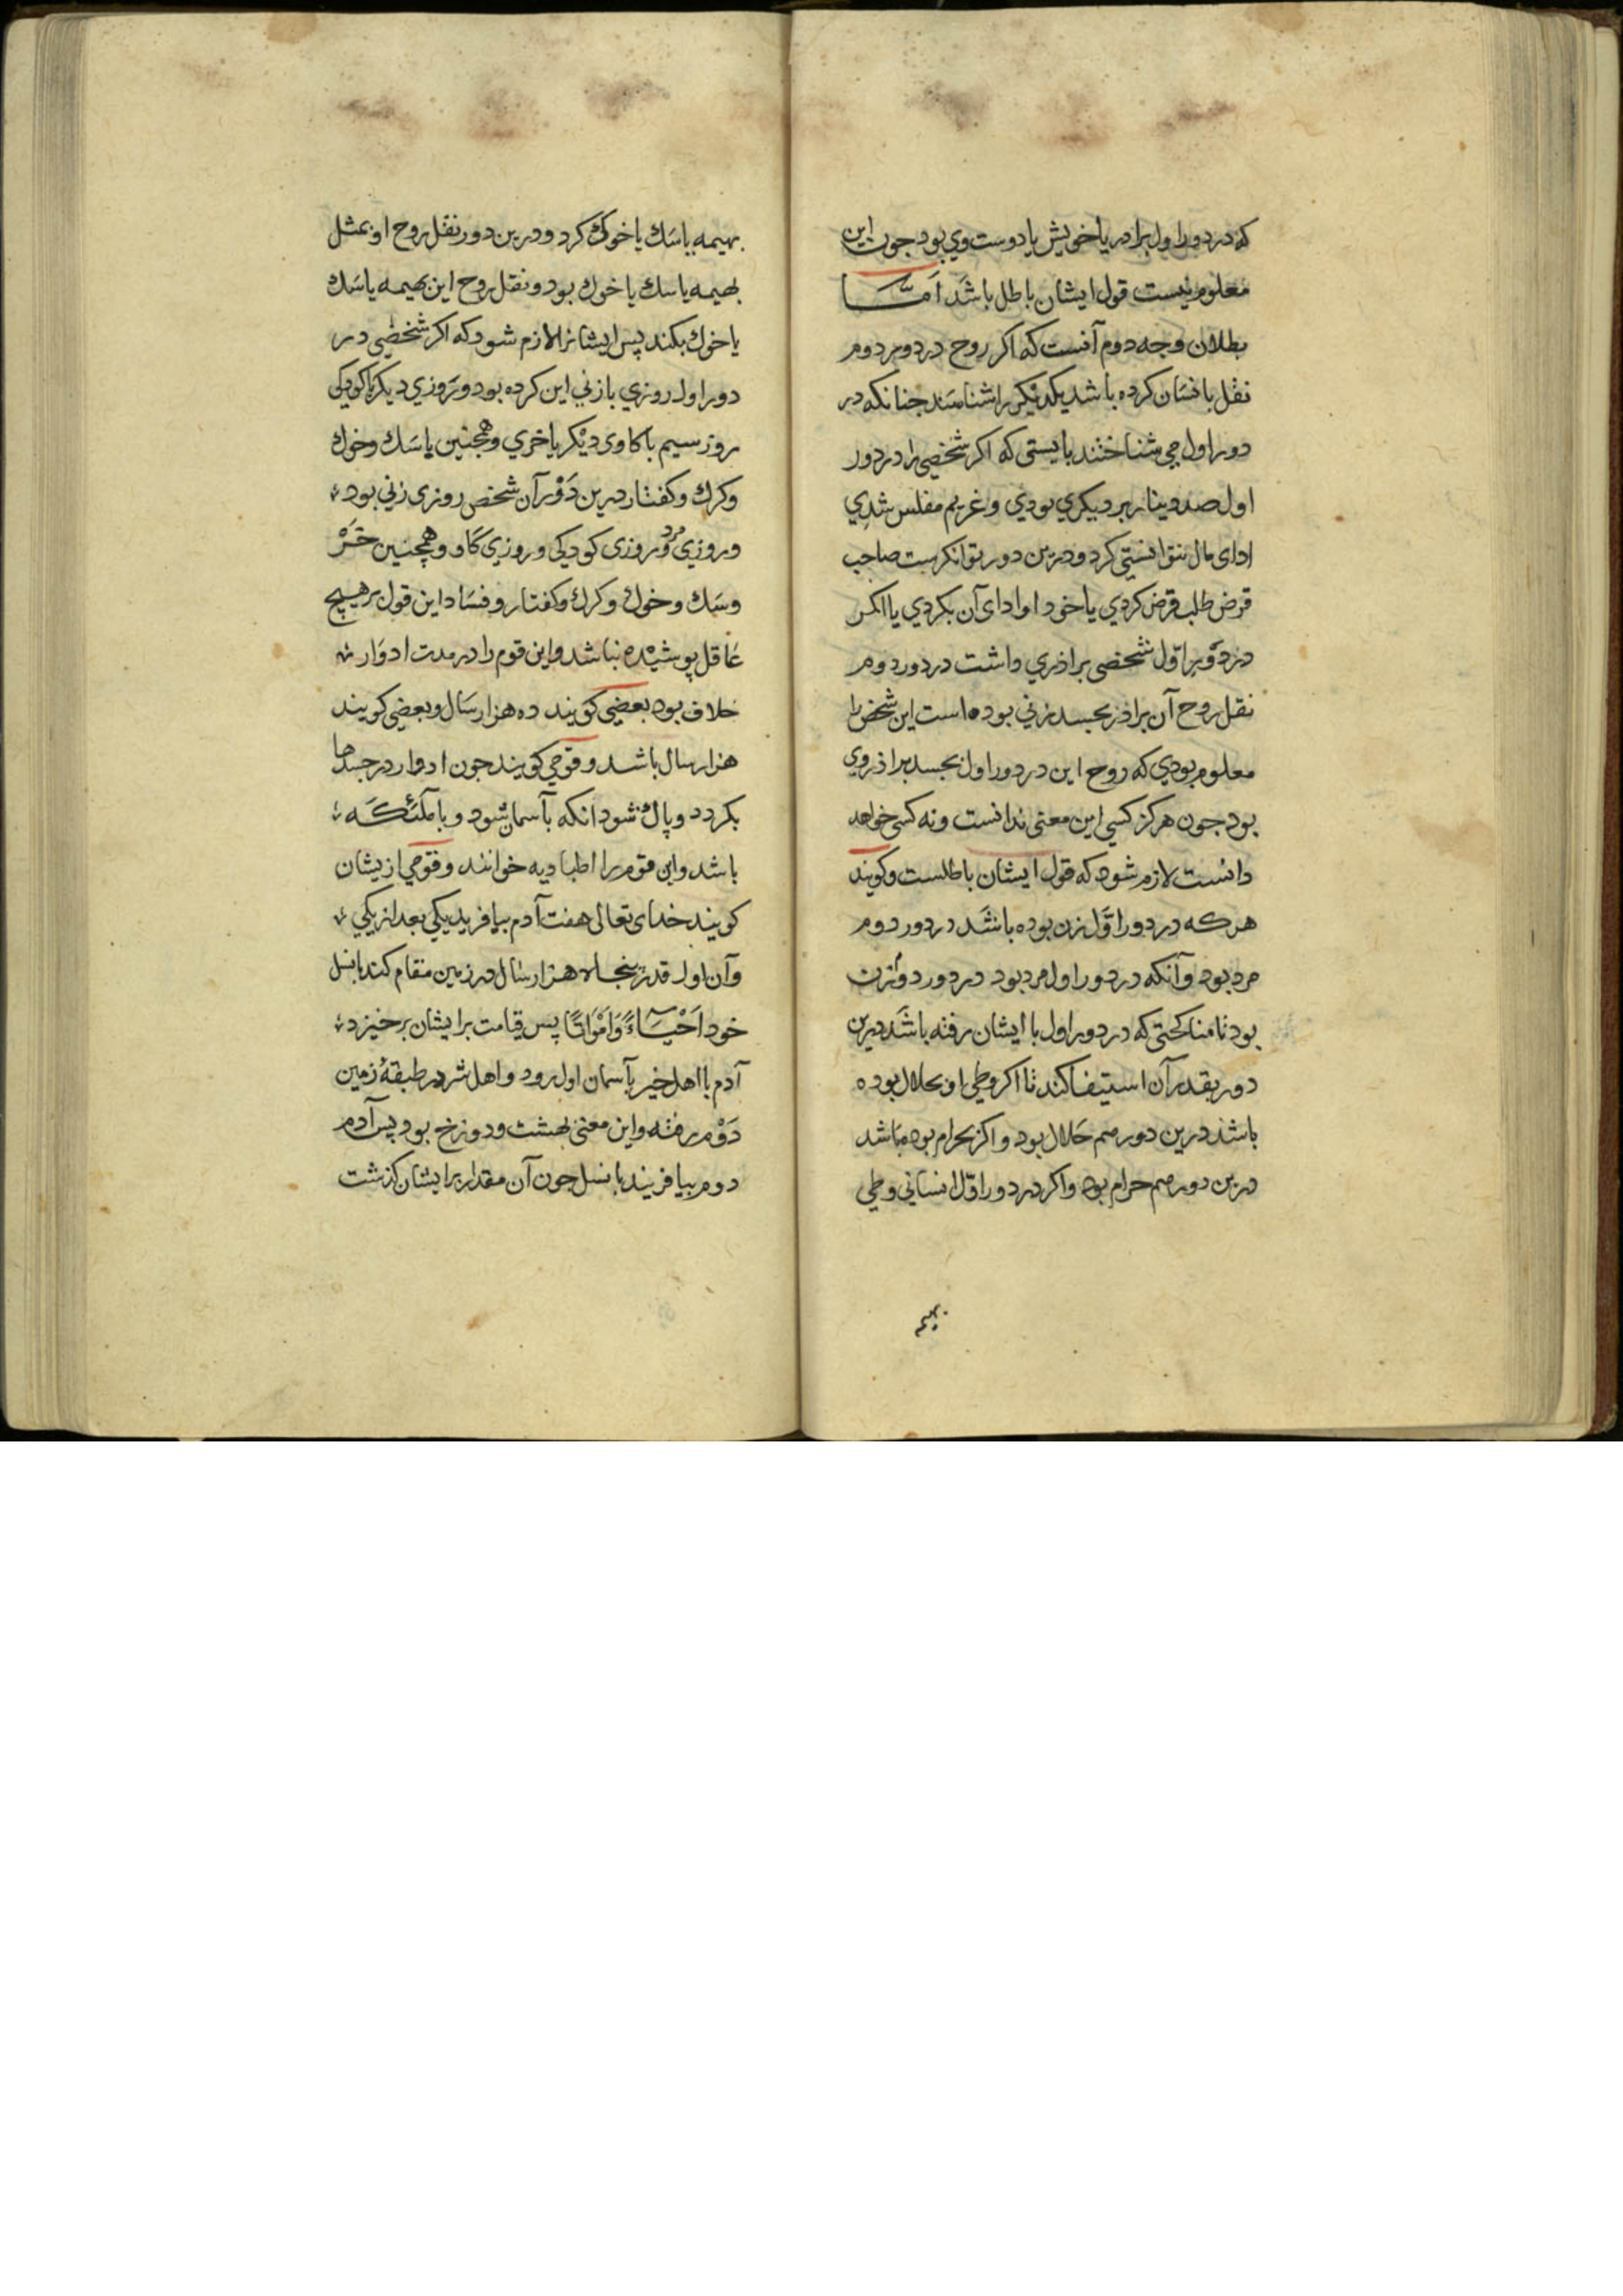 که در دور اول برادر یا خویش یا دوست وی بود جون این
معلوم نیست قول ایشان باطل باشد اما
بطلان وجه دوم آنست که اکر روح در دور دوم
نقل بانسان کرده باشد یکدیکر را شناسند جنانکه در
دور اول می شناختند بایستی که اکر شخصی را در دور
اول صد دینار بر دیکری بودی و غریم مفلس شدی
ادای مال نتوانستی کرد و درین دور توانکرست صاحب
قرض طلب قرض کردی یا خود او ادای آن بکردی یا اکر
در دور اول شخصی براذری داشت در دور دوم
نقل روح آن براذر بجسد زنی بوده است این شخص را
معلوم بودی که روح این در دور اول بجسد براذر وی
بود جون هرکز کسی این معنی ندانست و نه کسی خواهد
دانست لازم شود که قول ایشان باطلست و کویند
هرکه در دور اول زن بوده باشد در دور دوم
مرد بود و آنکه در دور اول مرد بود در دور دوم زن
بود تا مناکحتی که در دور اول با ایشان رفته باشد درین
دور بقدر آن استیفا کند تا اکر وطی او بحلال بوده
باشد درین دور هم حلال بود و اکر بحرام بوده باشد
درین دور هم حرام بود و اکر در دور اول انسانی وطی
بهیمه
بهیمه یا سک یا خوک کرد و درین دور نقل روح او بمثل
بهیمه یا سک یا خوک بود و نقل روح این بهیمه یا سک
یا خوک بکند پس ایشانرا لازم شود که اکر شخصی در
دور اول روزی بازنی این کرده بود و روزی دیکر باکودکی
روز سیم باکاوی دیکر باخری و همجنین باسک و خوک
و کرک و کفتار درین دور آن شخص روزی زنی بود
و روزی مرد و روزی کودکی و روزی کاو و همچنین خر
و سک و خوک و کرک و کفتار و فساد این قول بر هیچ
عاقل پوشیده نباشد و این قوم را در مدت ادوار
خلاف بود بعضی کویند ده هزار سال و بعضی کویند
هزار سال باشد و قومی کویند جون ادوار در جسدها
بکردد و پاک شود انکه بآسمان شود و با ملئکه
باشد و این قوم را اطبادیه خوانند و قومی ازیشان
کویند خدای تعالی هفت آدم بیافرید یکی بعد از یکی
و آن اول قدر پنجاه هزار سال در زمین مقام کند با نسل
خود اَحْیَاءً وَاَمْوَاتًا پس قیامت بر ایشان برخیزد
آدم با اهل خیر بآسمان اول رود و اهل شر در طبقهٔ زمین
دوم رفته و این معنی بهشت و دوزخ بود پس آدم
دوم بیافریند با نسل جون آن مقدار بر ایشان کذشت